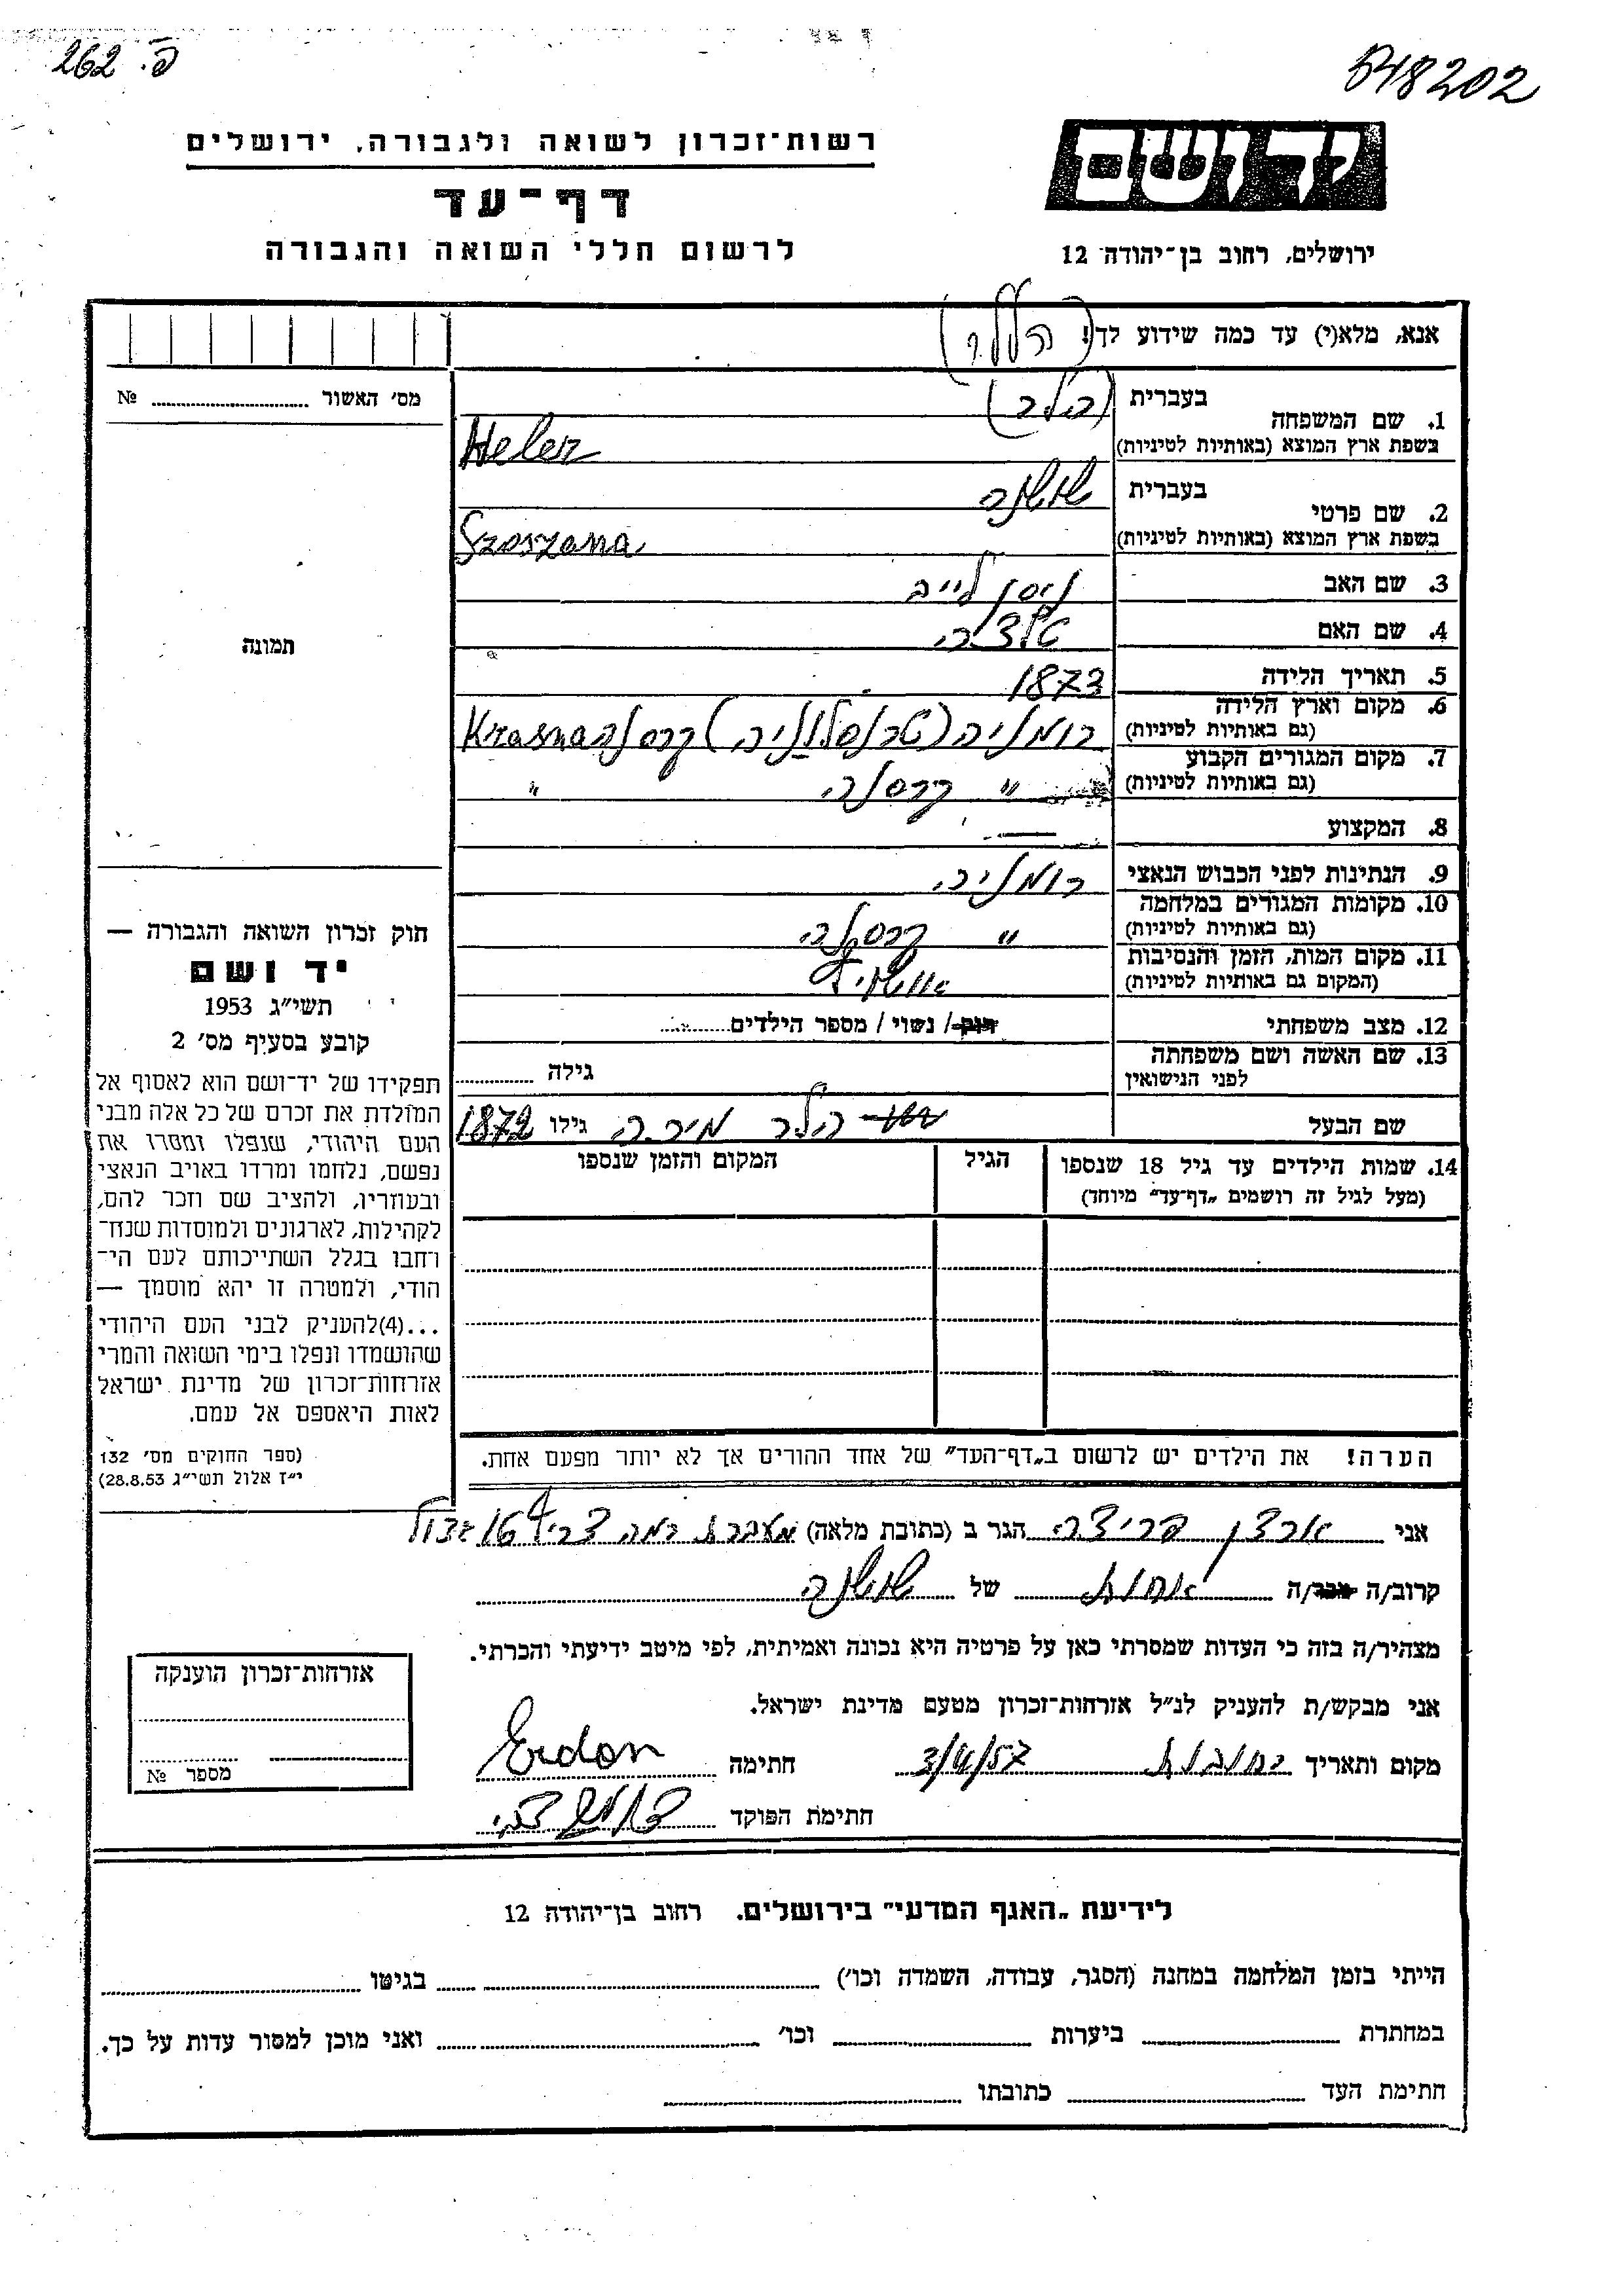 ה. 262
648202
רשות־זכרון לשואה ולגבורה, ירושלים
דף־עד
לרשום חללי השואה והגבורה
יד ושם
ירושלים, רחוב בן־יהודה 12
אנא, מלא(י) עד כמה שידוע לך!
מס׳ האשור ........ №
1. שם המשפחה
בעברית (הלר)
בשפת ארץ המוצא (באותיות לטיניות) Heler
2. שם פרטי
בעברית שושנה
בשפת ארץ המוצא (באותיות לטיניות) Szoszana
3. שם האב ניסן לייב
4. שם האם
5. תאריך הלידה 1873
6. מקום וארץ הלידה (גם באותיות לטיניות) רומניה (טרנסלוניה) קרסנה Krasna
7. מקום המגורים הקבוע (גם באותיות לטיניות) " קרסנה "
8. המקצוע —
9. הנתינות לפני הכבוש הנאצי רומניה
10. מקומות המגורים במלחמה (גם באותיות לטיניות) " קרסנה
11. מקום המות, הזמן והנסיבות (המקום גם באותיות לטיניות) אושויץ
12. מצב משפחתי רווק / נשוי / מספר הילדים........
13. שם האשה ושם משפחתה לפני הנישואין גילה ........
שם הבעל הלר גילו 1872
14. שמות הילדים עד גיל 18 שנספו
(מעל לגיל זה רושמים „דף־עד״ מיוחד)
הגיל
המקום והזמן שנספו
תמונה
חוק זכרון השואה והגבורה —
יד ושם
תשי״ג 1953
קובע בסעיף מס׳ 2
תפקידו של יד־ושם הוא לאסוף אל
המולדת את זכרם של כל אלה מבני
העם היהודי, שנפלו ומסרו את
נפשם, נלחמו ומרדו באויב הנאצי
ובעוזריו, ולהציב שם וזכר להם,
לקהילות, לארגונים ולמוסדות שנח־
רחבו בגלל השתייכותם לעם הי־
הודי, ולמטרה זו יהא מוסמך —
...(4)להעניק לבני העם היהודי
שהושמדו ונפלו בימי השואה והמרי
אזרחות־זכרון של מדינת ישראל
לאות היאספם אל עמם.
(ספר החוקים מס׳ 132
י״ז אלול תשי״ג 28.8.53)
הערה! את הילדים יש לרשום ב„דף־העד״ של אחד ההורים אך לא יותר מפעם אחת.
אני ארדן פריצה הגר ב (כתובת מלאה) מעברת רמה
קרוב/ה מכר/ה אחות של שושנה
מצהיר/ה בזה כי העדות שמסרתי כאן על פרטיה היא נכונה ואמיתית, לפי מיטב ידיעתי והכרתי.
אני מבקש/ת להעניק לנ״ל אזרחות־זכרון מטעם מדינת ישראל.
מקום ותאריך רחובות 3/4/57 חתימה Erdon
חתימת הפוקד
אזרחות־זכרון הוענקה
מספר №
לידיעת „האגף המדעי״ בירושלים. רחוב בן־יהודה 12
הייתי בזמן המלחמה במחנה (הסגר, עבודה, השמדה וכו׳) ........ בגיטו ........
במחתרת ........ ביערות ........ וכו׳ ........ ואני מוכן למסור עדות על כך.
חתימת העד ........ כתובתו ........